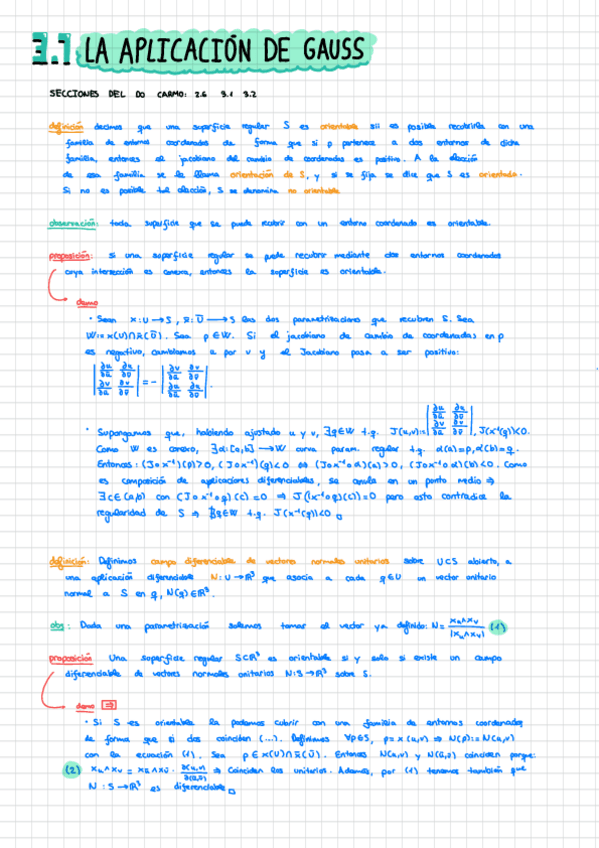 3.1 LA APLICACIÓN DE GAUSS
SECCIONES DEL DO CARMO: 2.6 3.1 3.2
definición decimos que una superficie regular S es orientable sii es posible recubrirla con una
familia de entornos coordenados de forma que si p pertenece a dos entornos de dicha
familia, entonces el jacobiano del cambio de coordenadas es positivo. A la elección
de esa familia se la llama orientación de S, y si se fija se dice que S es orientada.
Si no es posible tal elección, S se denomina no orientable
observación: toda superficie que se pueda recubrir con un entorno coordenado es orientable.
proposición: Si una superficie regular se puede recubrir mediante dos entornos coordenados
cuya intersección es conexa, entonces la superficie es orientable.
demo
• Sean x:U→S, x̄:Ū→S las dos parametrizaciones que recubren S. Sea
W:=x(U)∩x̄(Ū). Sea p∈W. Si el jacobiano de cambio de coordenadas en p
es negativo, cambiamos u por v y el Jacobiano pasa a ser positivo:
|∂u/∂ū ∂u/∂v̄; ∂v/∂ū ∂v/∂v̄| = - |∂v/∂ū ∂v/∂v̄; ∂u/∂ū ∂u/∂v̄|.
• Supongamos que, habiendo ajustado u y v, ∃q∈W t.q. J(u,v):=|∂u/∂ū ∂u/∂v̄; ∂v/∂ū ∂v/∂v̄|, J(x⁻¹(q))<0.
Como W es conexo, ∃α:[a,b]→W curva param. regular t.q. α(a)=p, α(b)=q.
Entonces: (J∘x⁻¹)(p)>0, (J∘x⁻¹)(q)<0 ⇔ (J∘x⁻¹∘α)(a)>0, (J∘x⁻¹∘α)(b)<0. Como
es composición de aplicaciones diferenciables, se anula en un punto medio ⇒
∃c∈(a,b) con (J∘x⁻¹∘φ)(c)=0 ⇒ J(x⁻¹∘φ)(c))=0 pero esto contradice la
regularidad de S ⇒ ∄q∈W t.q. J(x⁻¹(q))<0 □
definición: Definimos campo diferenciable de vectores normales unitarios sobre U⊂S abierto, a
una aplicación diferenciable N:U→ℝ³ que asocia a cada q∈U un vector unitario
normal a S en q, N(q)∈ℝ³.
obs: Dada una parametrización solemos tomar el vector ya definido: N = xᵤ∧xᵥ/|xᵤ∧xᵥ| (1)
proposición Una superficie regular S⊂ℝ³ es orientable si y solo si existe un campo
diferenciable de vectores normales unitarios N:S→ℝ³ sobre S.
demo ⇒
• Si S es orientable la podemos cubrir con una familia de entornos coordenados
de forma que si dos coinciden (...). Definimos ∀p∈S, p=x(u,v) ⇒ N(p):=N(u,v)
con la ecuación (1). Sea p∈x(U)∩x̄(Ū). Entonces N(u,v) y N(ū,v̄) coinciden porque:
(2) xᵤ∧xᵥ = xū∧xv̄ · ∂(u,v)/∂(ū,v̄) ⇒ Coinciden los unitarios. Además, por (1) tenemos también que
N:S→ℝ³ es diferenciable □